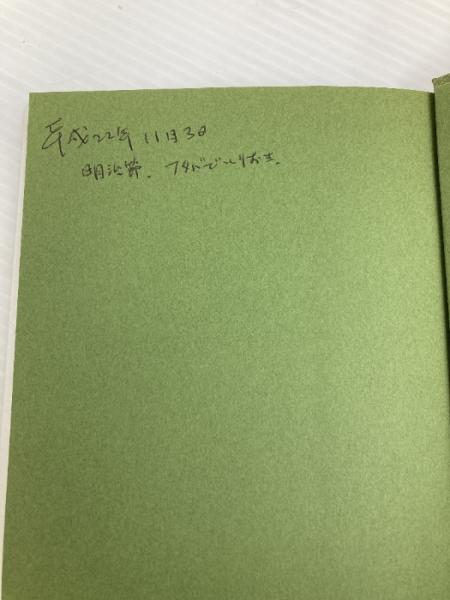 平成22年11月3日
明治節. フタバでとりおき.